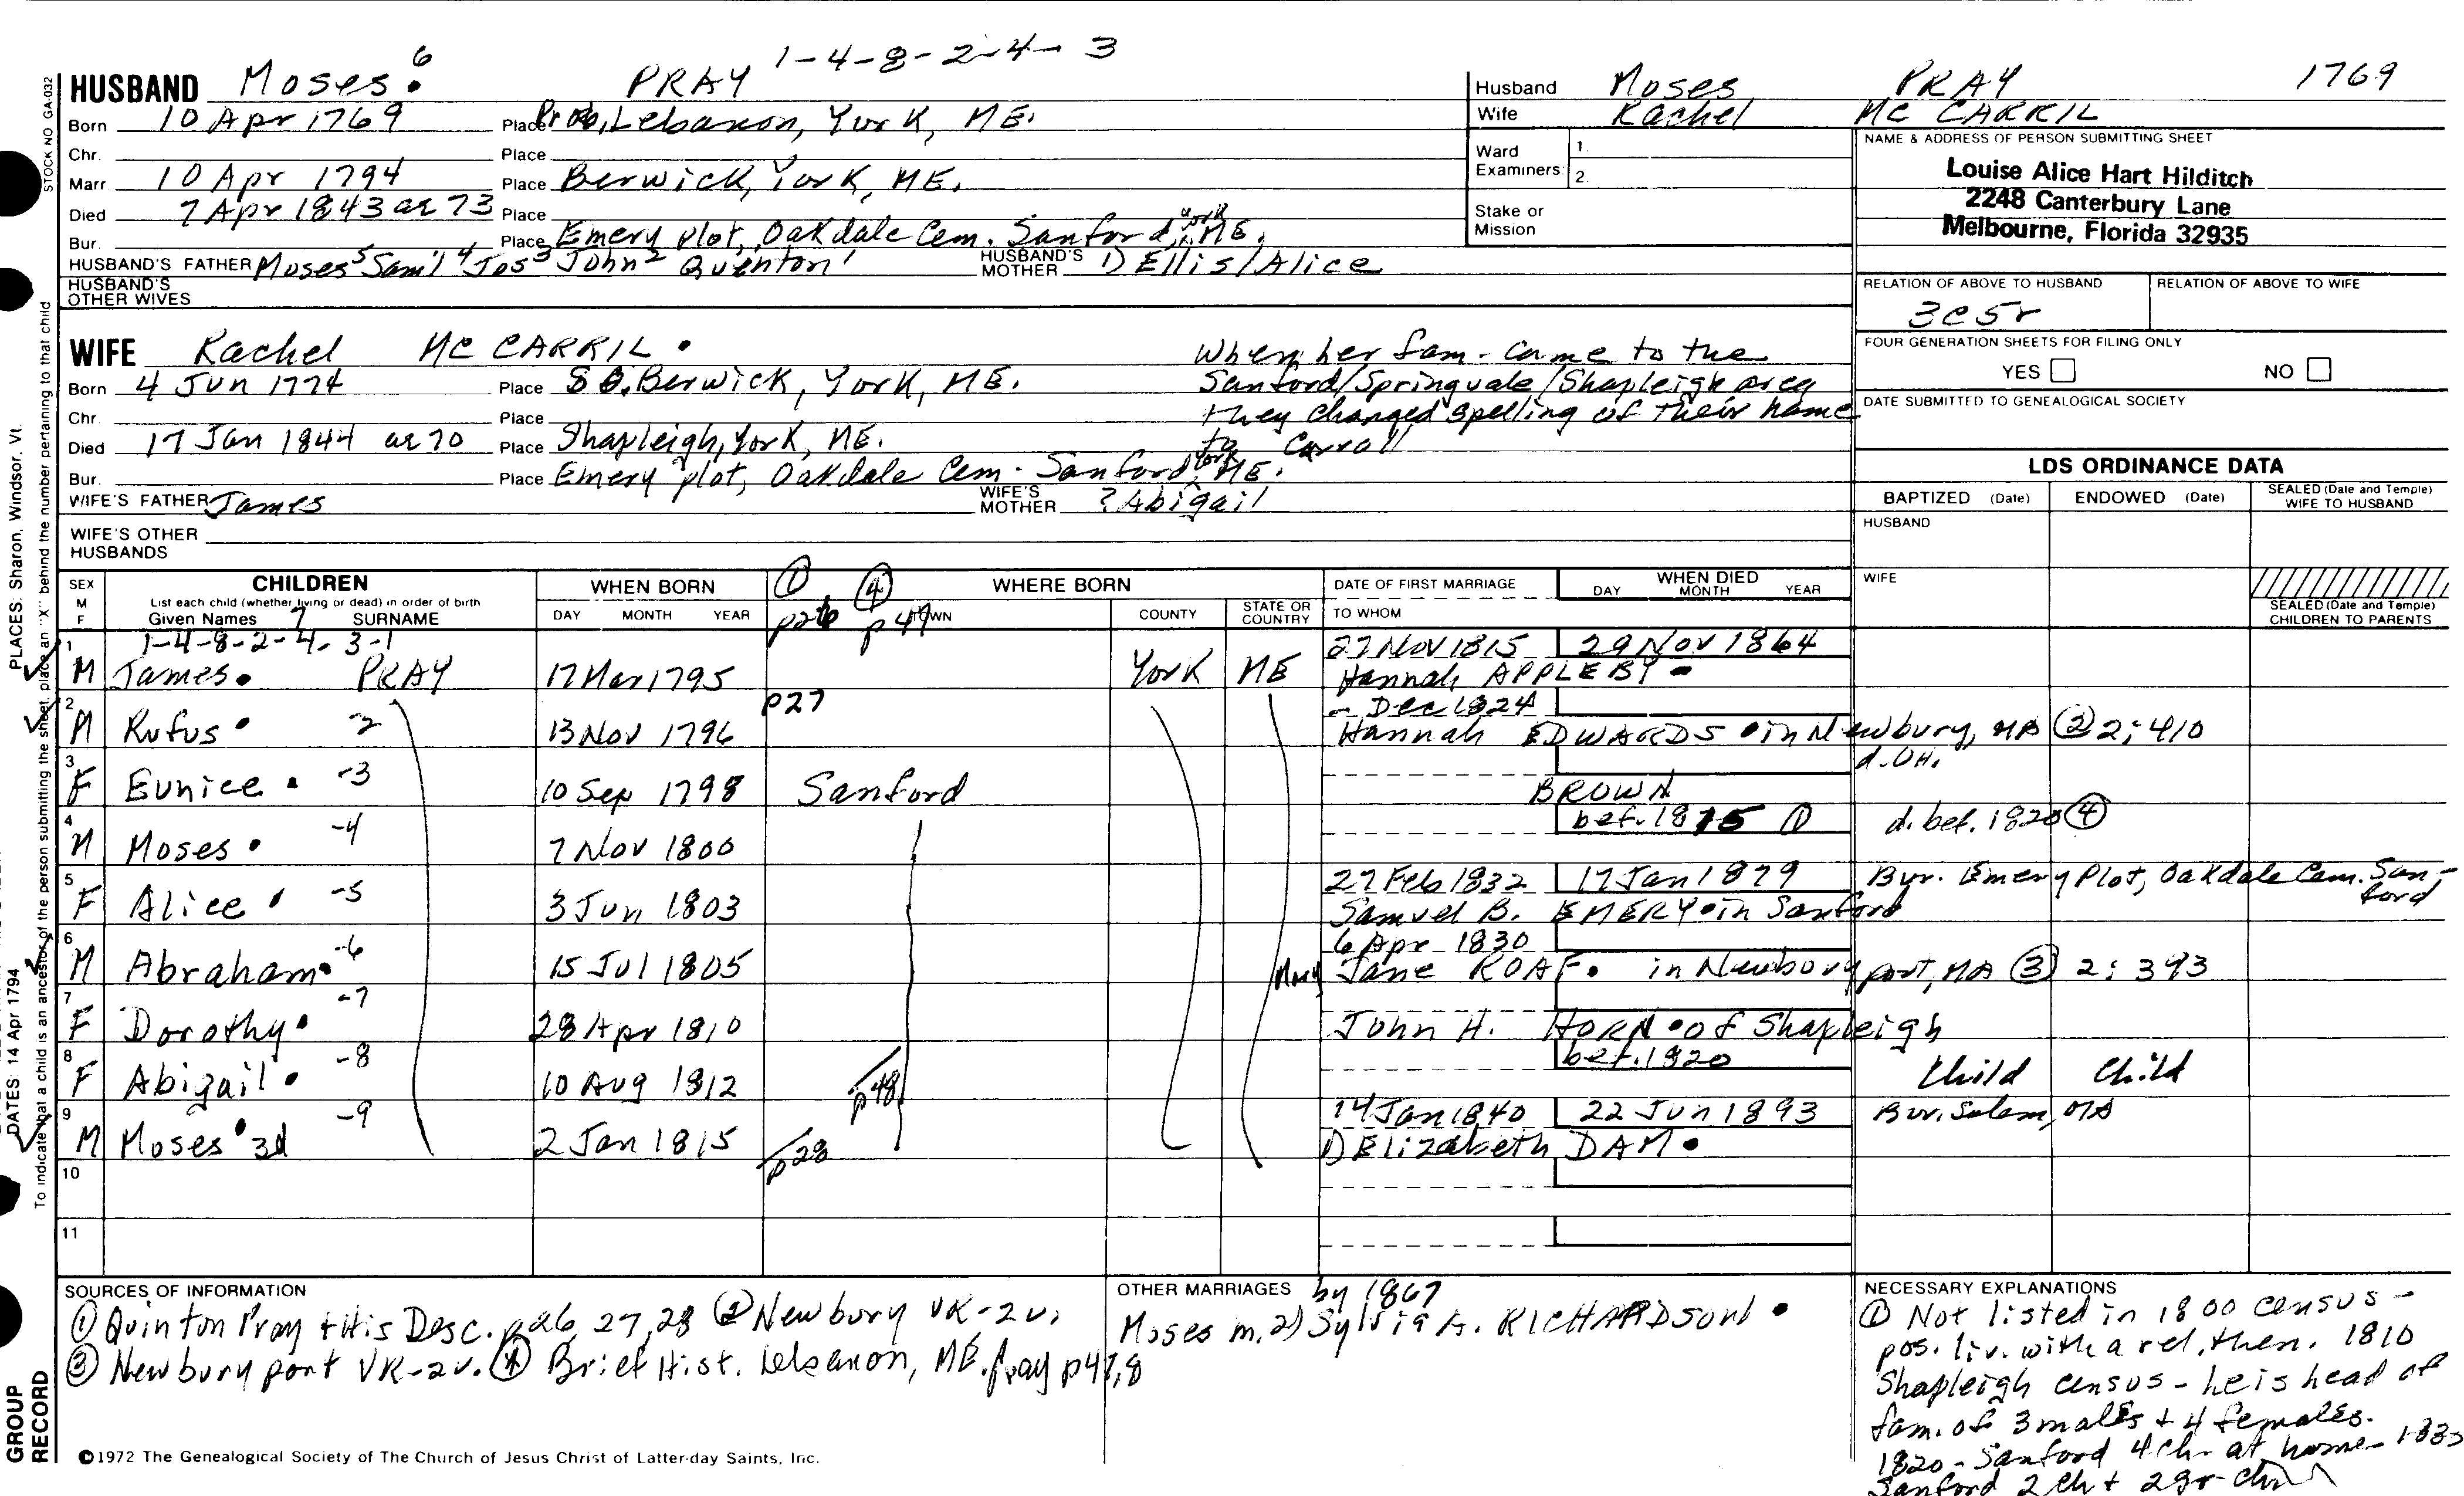 1-4-8-2-4-3
HUSBAND Moses 6 PRAY
Born 10 Apr 1769 Place Lebanon, York, ME.
Chr. Place
Marr. 10 Apr 1794 Place Berwick, York, ME.
Died 7 Apr 1843 ae 73 Place
Bur. Place Emery plot, Oakdale Cem. Sanford, York, ME.
HUSBAND'S FATHER Moses5 Sam'l4 Jos3 John2 Quenton1 HUSBAND'S MOTHER 1) Ellis/Alice
HUSBAND'S OTHER WIVES
Husband Moses PRAY 1769
Wife Rachel MC CARRIL
Ward Examiners: 1. 2.
Stake or Mission
NAME & ADDRESS OF PERSON SUBMITTING SHEET
Louise Alice Hart Hilditch
2248 Canterbury Lane
Melbourne, Florida 32935
RELATION OF ABOVE TO HUSBAND RELATION OF ABOVE TO WIFE
3c5r
FOUR GENERATION SHEETS FOR FILING ONLY
YES NO
DATE SUBMITTED TO GENEALOGICAL SOCIETY
WIFE Rachel MC CARRIL
Born 4 Jun 1774 Place So. Berwick, York, ME.
Chr. Place
Died 17 Jan 1844 ae 70 Place Shapleigh, York, ME.
Bur. Place Emery plot, Oakdale Cem. Sanford, York, ME.
WIFE'S FATHER James WIFE'S MOTHER ? Abigail
WIFE'S OTHER HUSBANDS
When her fam. came to the
Sanford/Springvale/Shapleigh area
they changed spelling of their name
to Carroll
LDS ORDINANCE DATA
BAPTIZED (Date) ENDOWED (Date) SEALED (Date and Temple) WIFE TO HUSBAND
HUSBAND
WIFE
SEALED (Date and Temple) CHILDREN TO PARENTS
SEX M F CHILDREN WHEN BORN ① ④ WHERE BORN DATE OF FIRST MARRIAGE WHEN DIED
List each child (whether living or dead) in order of birth
Given Names 7 SURNAME DAY MONTH YEAR p26 p47 TOWN COUNTY STATE OR COUNTRY TO WHOM DAY MONTH YEAR
1 1-4-8-2-4-3-1 27 Nov 1815 29 Nov 1864
M James PRAY 17 Mar 1795 York ME Hannah APPLEBY
2 p27 - Dec 1824
M Rufus -2 13 Nov 1796 Hannah EDWARDS in Newbury, MA ② 2:410
3 d. OH.
F Eunice -3 10 Sep 1798 Sanford BROWN
4 bef. 1815 ① d. bef. 1820 ④
M Moses -4 7 Nov 1800
5 27 Feb 1832 17 Jan 1879 Bur. Emery Plot, Oakdale Cem. Sanford
F Alice -5 3 Jun 1803 Samuel B. EMERY in Sanford
6 6 Apr 1830
M Abraham -6 15 Jul 1805 Mary Jane ROAF in Newburyport, MA ③ 2:393
7
F Dorothy -7 28 Apr 1810 John H. HORN of Shapleigh
8 bef. 1820
F Abigail -8 10 Aug 1812 p48 Child Child
9 14 Jan 1840 22 Jun 1893 Bur. Salem, MA
M Moses 3d -9 2 Jan 1815 p28 1) Elizabeth DAM
10
11
SOURCES OF INFORMATION
① Quinton Pray & His Desc. p26, 27, 28 ② Newbury VR-2v.
③ Newburyport VR-2v. ④ Brief Hist. Lebanon, ME. Pray p47,8
OTHER MARRIAGES by 1867
Moses m. 2) Sylvia A. RICHARDSON
NECESSARY EXPLANATIONS
① Not listed in 1800 census -
pos. liv. with a rel. then. 1810
Shapleigh census - he is head of
fam. of 3 males + 4 females.
1820 - Sanford 4 ch. at home -
Sanford 2 ch +
©1972 The Genealogical Society of The Church of Jesus Christ of Latter-day Saints, Inc.
STOCK NO GA-032
PLACES: Sharon, Windsor, Vt.
DATES: 14 Apr 1794
To indicate that a child is an ancestor of the person submitting the sheet, place an "X" behind the number pertaining to that child
GROUP
RECORD